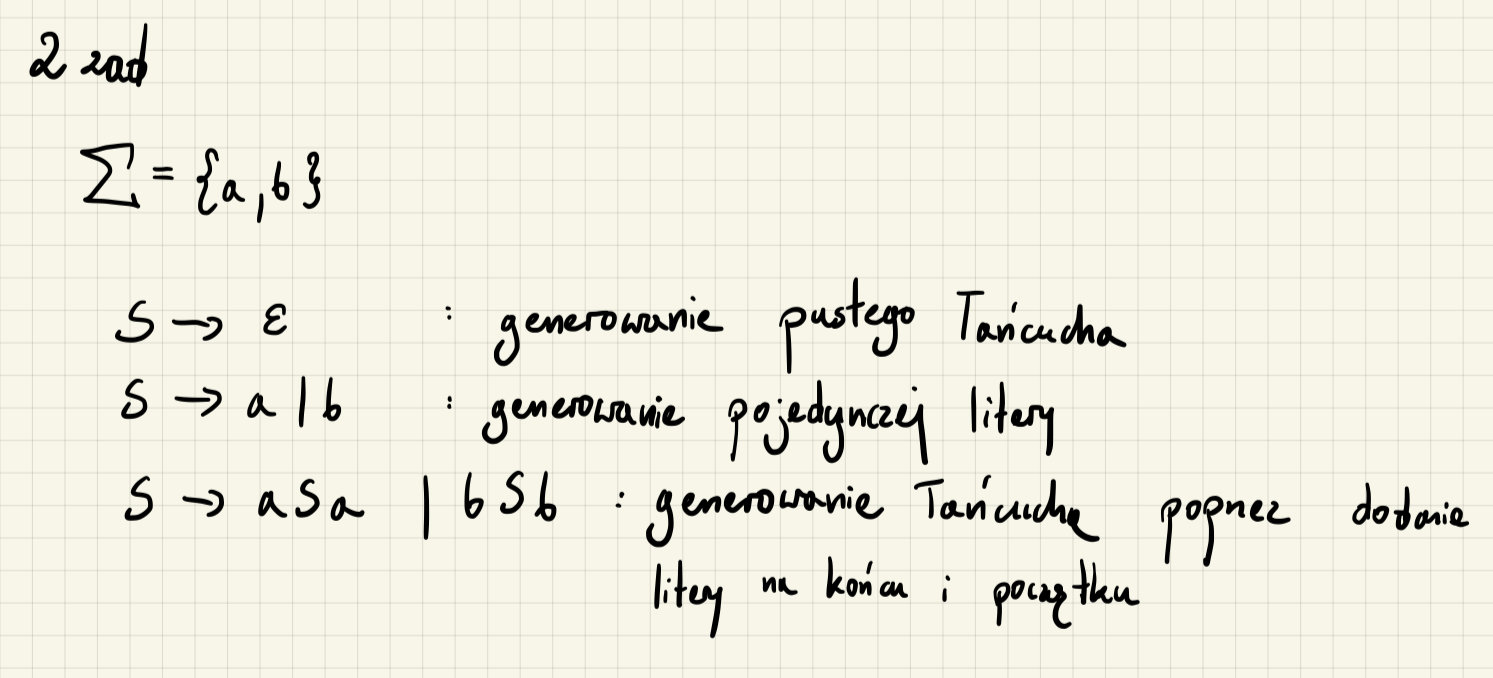 2 zad
Σ = {a,b}
S → ε : generowanie pustego łańcucha
S → a | b : generowanie pojedynczej litery
S → aSa | bSb : generowanie łańcucha poprzez dodanie
litery na końcu i początku